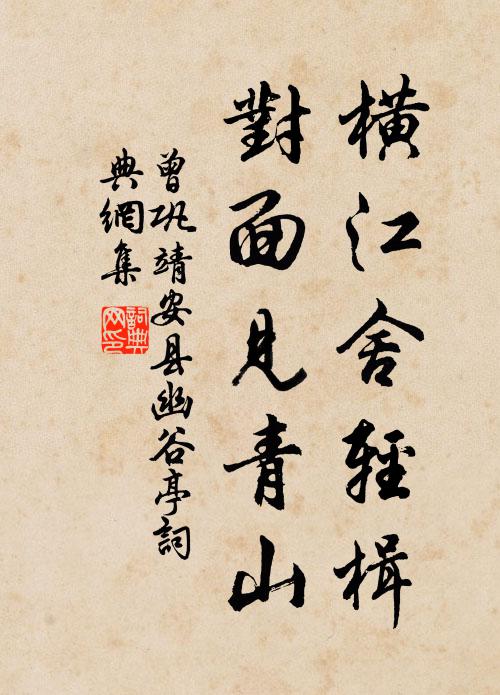 橫江舍輕楫
對面見青山
曾巩靖安县幽谷亭詞
典網集
詞典網印